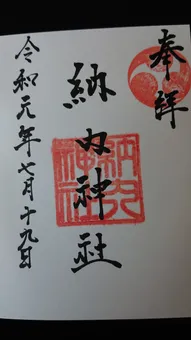 奉拝
納内神社
納内神社
令和元年七月十九日